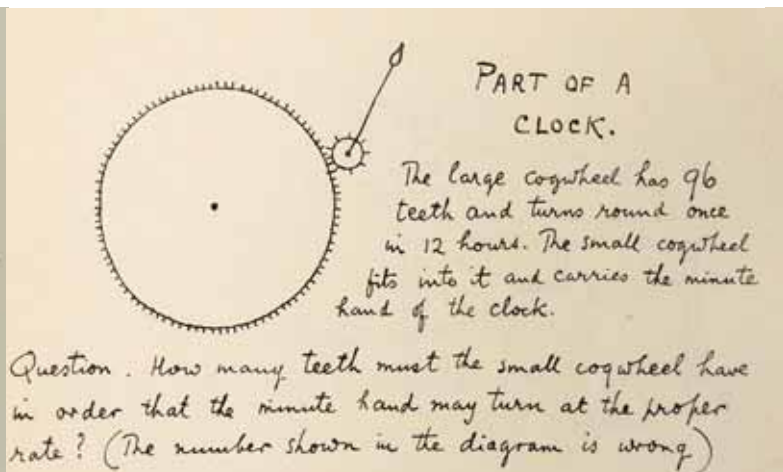 PART OF A
CLOCK.
The large cogwheel has 96
teeth and turns round once
in 12 hours. The small cogwheel
fits into it and carries the minute
hand of the clock.
Question. How many teeth must the small cogwheel have
in order that the minute hand may turn at the proper
rate? (The number shown in the diagram is wrong)